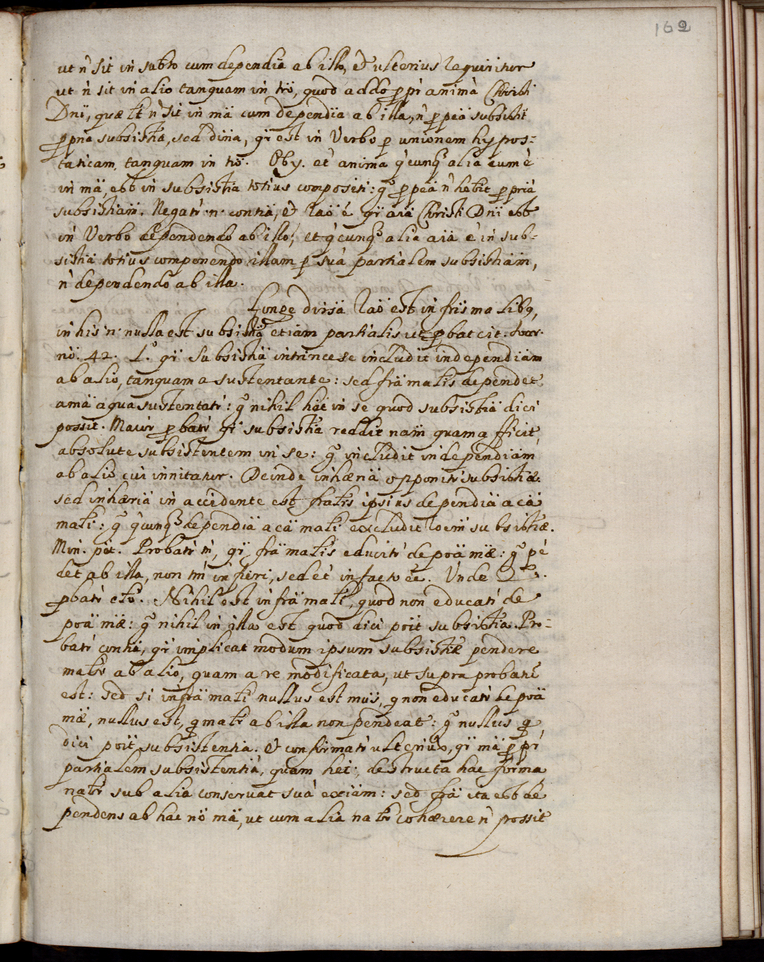 162
ut ñ sit in subto cum dependia ab illo, et ulterius requiritur
ut ñ sit in alio tanquam in tto, quod addo ppr animã Christi
Dnī, quæ lt ñ sit in mã cum dependia ab illa, ñ p peã subsisti
p pna subsistia, sed dina, qī est in Verbo p unionem hypos-
taticam tanquam in tto. Oby. et anima qcunq alia cum è
in mã, est in subsistia totius compositi: g° p peã ñ hebit p priã
subsistiam. Negatr n contia, et rao é qī aia Christi Dni est
in Verbo dependendo ab illo, et qcunq alia aia è in sub-
sistia totius componendo illam p sua partialem subsistiam,
ñ dependendo ab illa.
Longe divsa rao est in friis malibq,
in his n nulla est subsistia etiam partialis ut pbat cit. Soar.
nō 42. 1.° qī subsistia intrincese includit independiam
ab alio, tanquam a sustentante: sed frã malis dependet
a mã a qua sustentatr: g° nihil hãt in se quod subsistiã dici
possit. Maior pbatr qī subsistia reddit nam quam afficit,
absolute subsistentem in se: g° includit independiam
ab alio cui innitatur. Deinde inhæna opponitr subsistiæ
sed inhæria in accidente est fratis ipsius dependia a cã
mali: g° qcunq dependia a cã mali excludit roem subsistiæ.
Min. pēt. Probatr tn, qī frã malis educitr de poã mæ: g° pē
det ab illa, non tm in fieri, sed et in facto ēe. Unde
pbatr 2.° Nihil est in frã mali, quod non educatr de
poã mæ: g° nihil in illa est quod dici poït subsistia. Pro-
batr contia, qī implicat modum ipsum subsistiæ pendere
maltr ab alio, quam a re modificata, ut supra probant
est: sed si in frã mali nullus est mus, q non educatr de poã
mã, nullus est, q maltr ab illa non pendeat: g° nullus q
dici poït subsistentia. Et confirmatr ulterius, qī mã p pr
partialem subsistentiã, quam het, destructa hac forma
naltr sub alia conservat suã exiam: sed frã ita est de
pendens ab hac nō mã, ut cum alia naltr cohærere ñ possit